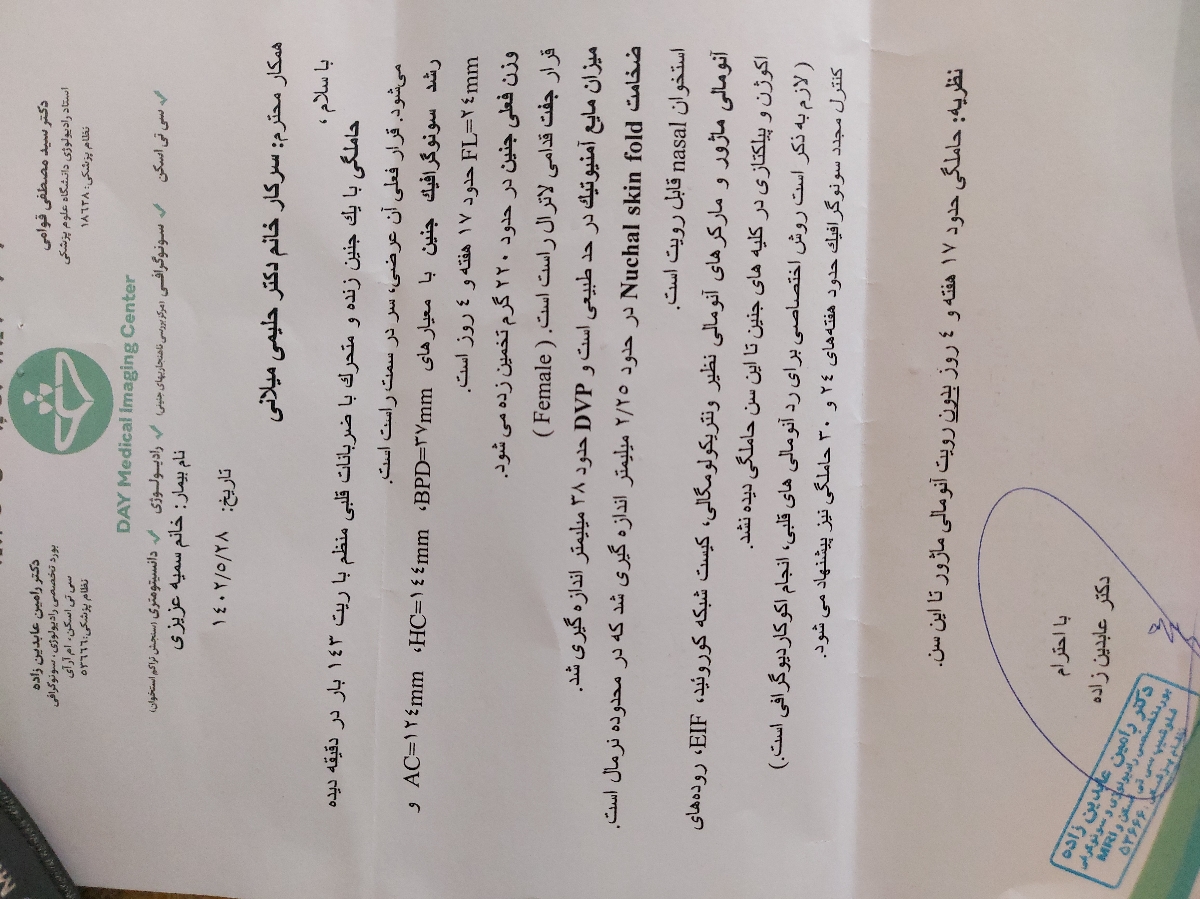 دکتر سید مصطفی قوامی
استاد رادیولوژی دانشگاه علوم پزشکی
نظام پزشکی: ۱۸۶۳۸
دکتر رامین عابدین زاده
بورد تخصصی رادیولوژی، سونوگرافی
سی تی اسکن، ام آر آی
نظام پزشکی: ۵۳۶۶۶
DAY Medical Imaging Center
✓ سی تی اسکن ✓ سونوگرافی (مرکز بررسی ناهنجاریهای جنینی) ✓ رادیولوژی ✓ دانسیتومتری (سنجش تراکم استخوان)
نام بیمار: خانم سمیه عزیزی
تاریخ: ۱٤۰۲/۵/۲۸
همکار محترم: سرکار خانم دکتر حلیمی میلانی
با سلام،
حاملگی با یك جنین زنده و متحرك با ضربانات قلبی منظم با ریت ۱٤۳ بار در دقیقه دیده
می‌شود. قرار فعلی آن عرضی، سر در سمت راست است.
رشد سونوگرافیك جنین با معیارهای BPD=۳۷mm، HC=۱٤٤mm، AC=۱۲٤mm و
FL=۲٤mm حدود ۱۷ هفته و ٤ روز است.
وزن فعلی جنین در حدود ۲۲۰ گرم تخمین زده می شود.
قرار جفت قدامی لاترال راست است. ( Female )
میزان مایع آمنیوتیك در حد طبیعی است و DVP حدود ۳۸ میلیمتر اندازه گیری شد.
ضخامت Nuchal skin fold در حدود ۲/۲۵ میلیمتر اندازه گیری شد که در محدوده نرمال است.
استخوان nasal قابل رویت است.
آنومالی ماژور و مارکرهای آنومالی نظیر ونتریکولومگالی، کیست شبکه کوروئید، EIF، روده‌های
اکوژن و پیلکتازی در کلیه های جنین تا این سن حاملگی دیده نشد.
( لازم به ذکر است روش اختصاصی برای رد آنومالی های قلبی، انجام اکوکاردیوگرافی است.)
کنترل مجدد سونوگرافیك حدود هفته‌های ۲٤ و ۳۰ حاملگی نیز پیشنهاد می شود.
نظریه: حاملگی حدود ۱۷ هفته و ٤ روز بدون رویت آنومالی ماژور تا این سن.
با احترام
دکتر عابدین زاده
دکتر رامین عابدین زاده
بورد تخصصی رادیولوژی و سونوگرافی
MRI
۵۳۶۶۶